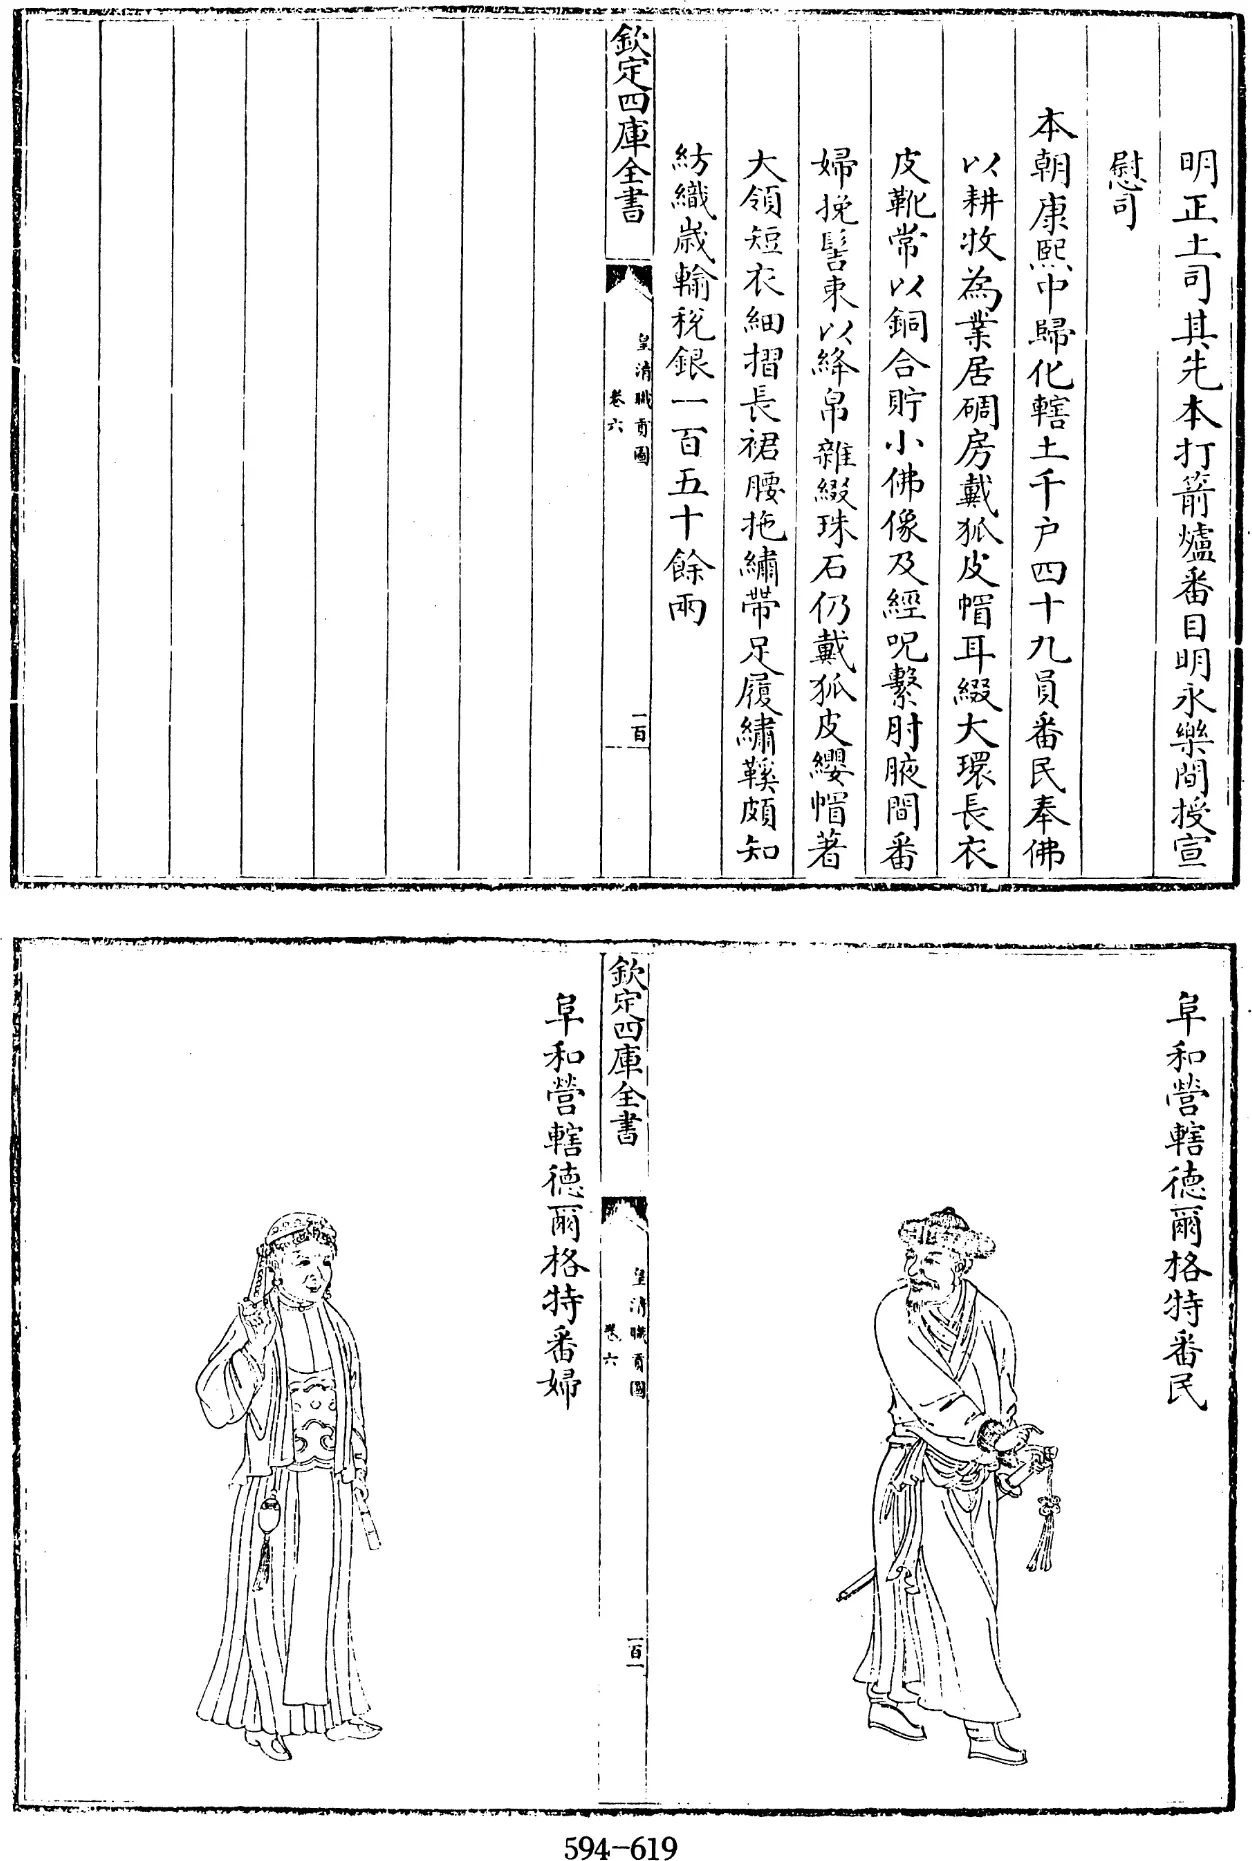 明正土司其先本打箭爐番目明永樂間授宣
慰司
本朝康熙中歸化轄土千户四十九員番民奉佛
以耕牧為業居碉房戴狐皮帽耳綴大環長衣
皮靴常以銅合貯小佛像及經呪繫肘腋間番
婦挽髻束以絳帛雜綴珠石仍戴狐皮纓帽著
大領短衣細摺長裙腰拖繡帶足履繡鞵頗知
紡織歳輸税銀一百五十餘兩
欽定四庫全書
皇清職貢圖
卷六
一百
阜和營轄德爾格特番民
欽定四庫全書
皇清職貢圖
卷六
一百一
阜和營轄德爾格特番婦
594-619